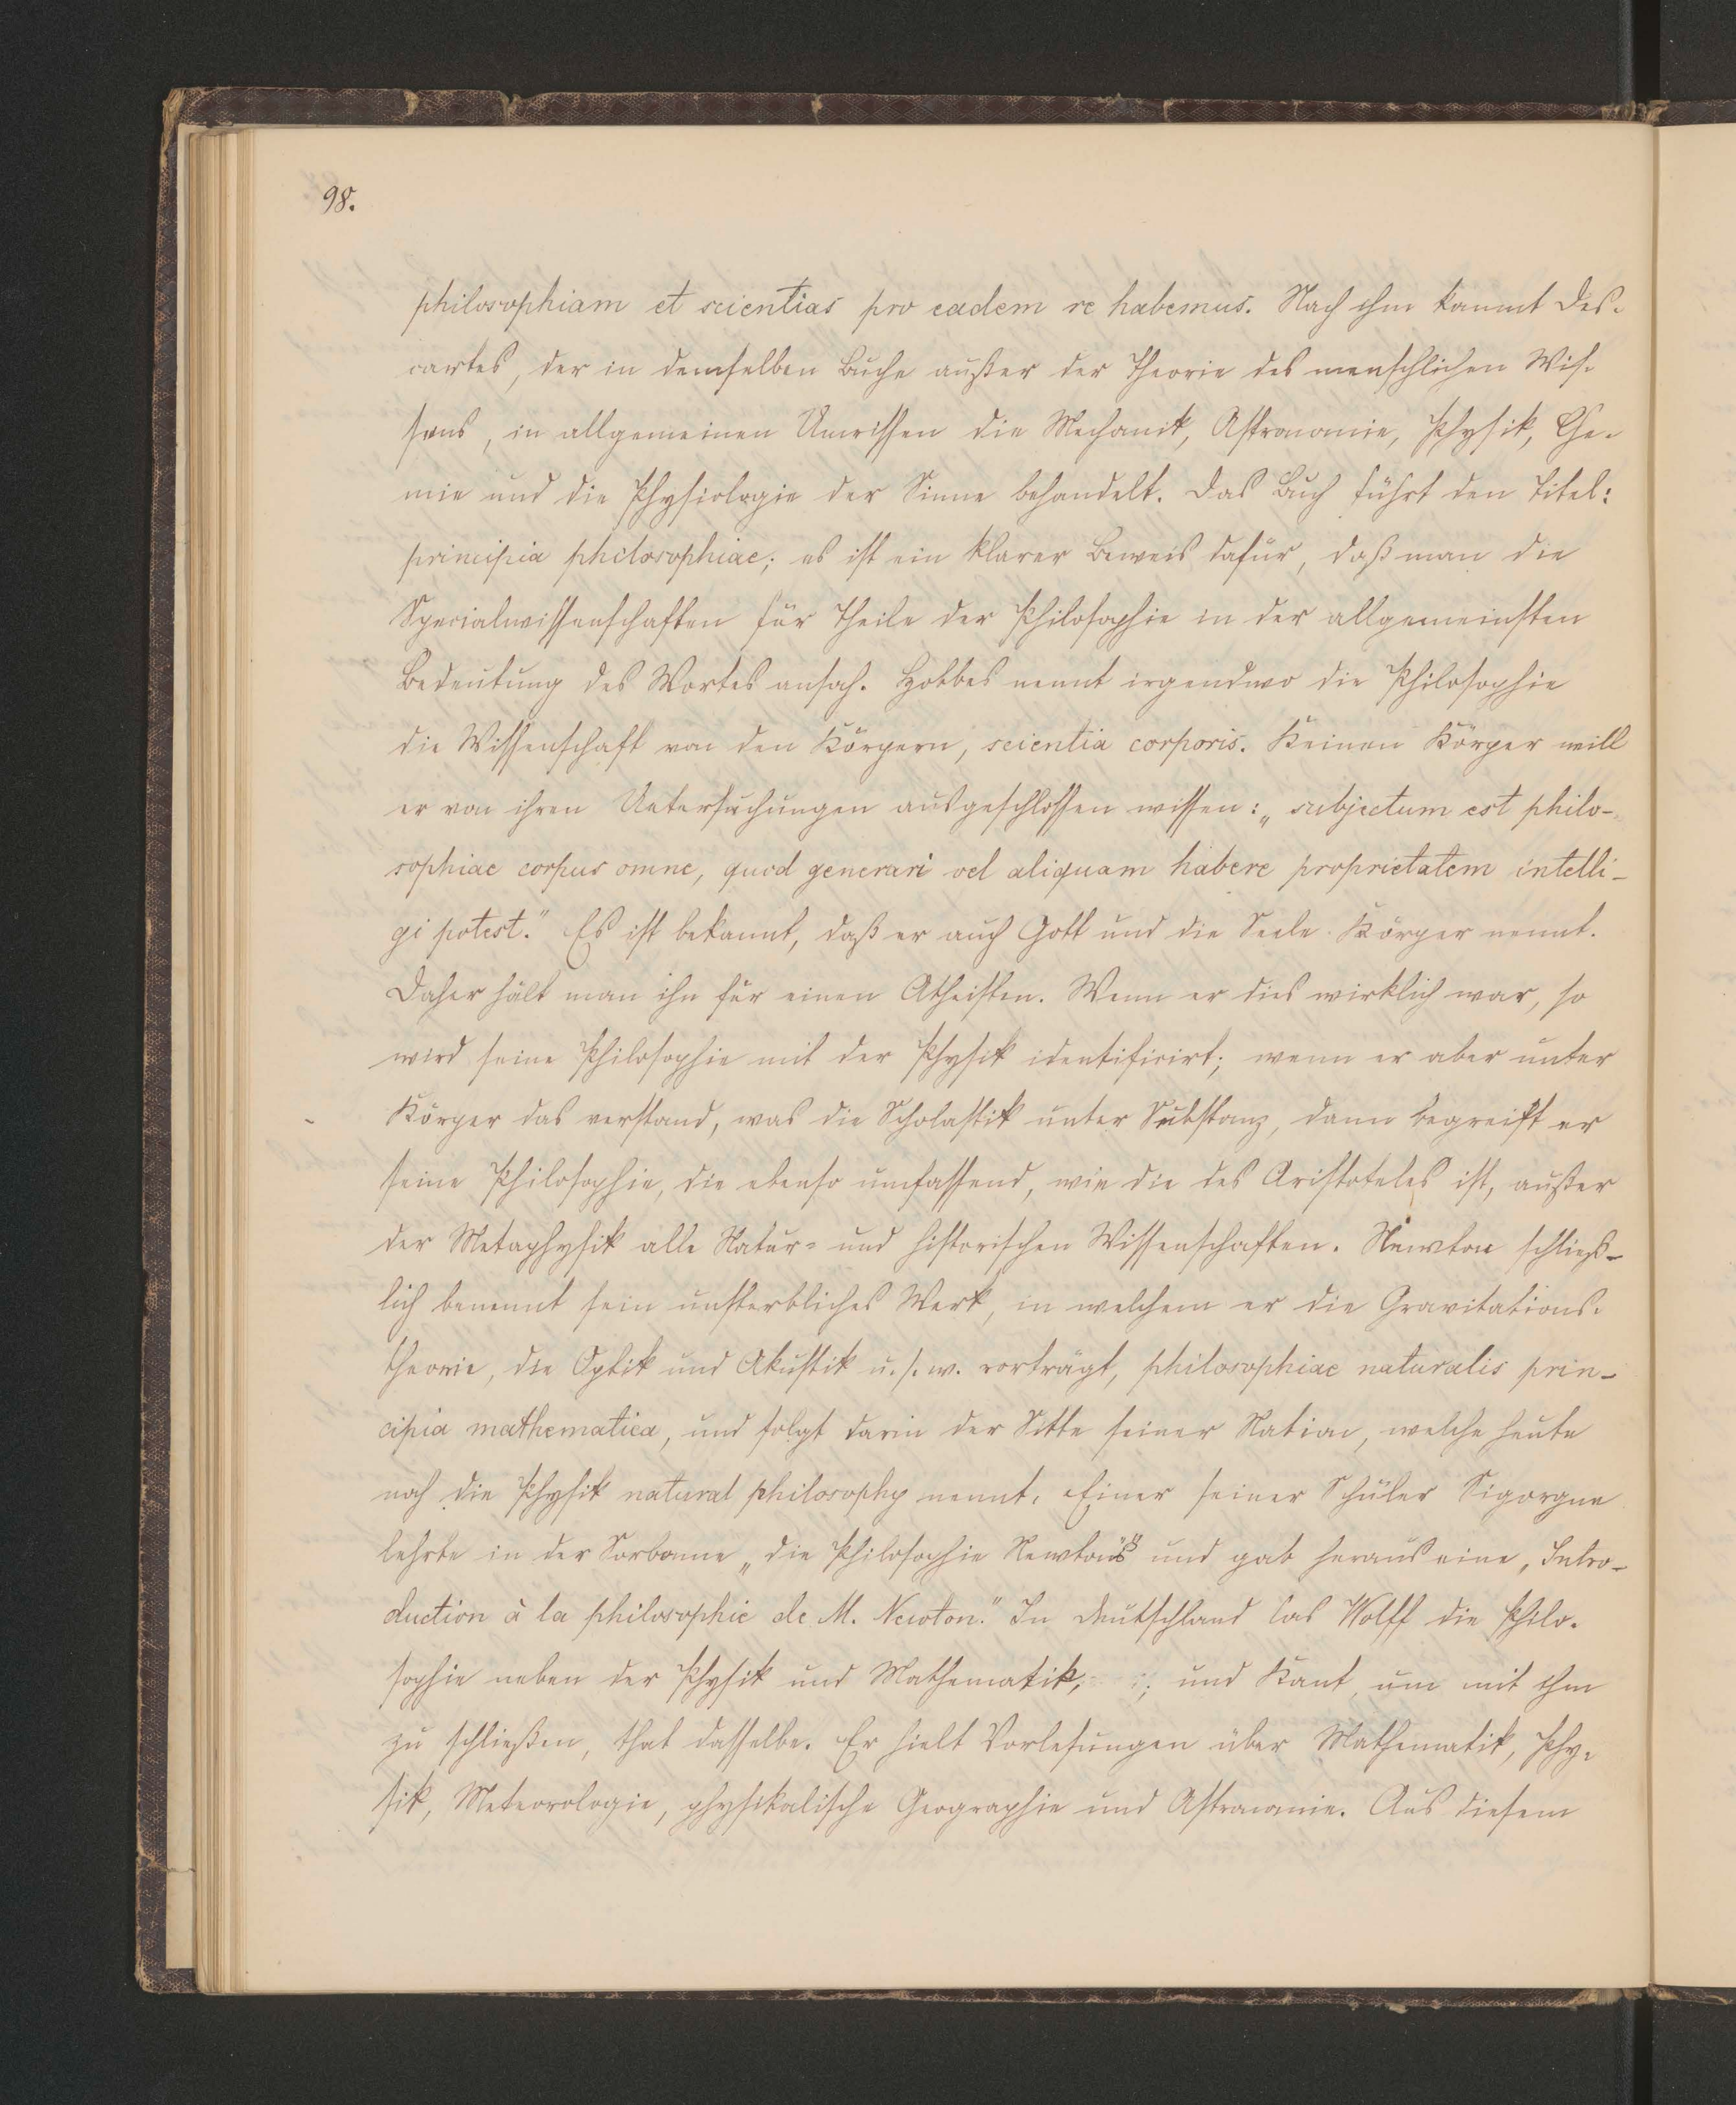 98.
philosophiam et scientias pro eadem re habemus. Nach ihm kommt Des-
cartes, der in demselben Buche außer der Theorie des menschlichen Wis-
sens, in allgemeinen Umrissen die Mechanik, Astronomie, Physik, Che-
mie und die Physiologie der Sinne behandelt. Das Buch führt den Titel:
principia philosophiae; es ist ein klarer Beweis dafür, daß man die
Specialwissenschaften für Theile der Philosophie in der allgemeinsten
Bedeutung des Wortes ansah. Hobbes nennt irgendwo die Philosophie
die Wissenschaft von den Körpern, scientia corporis. Keinen Körper will
er von ihren Untersuchungen ausgeschlossen wissen: „subjectum est philo-
sophiae corpus omne, quod generari vel aliquam habere proprietatem intelli-
gi potest." Es ist bekannt, daß er auch Gott und die Seele Körper nennt.
Daher hält man ihn für einen Atheisten. Wenn er dies wirklich war, so
wird seine Philosophie mit der Physik identificirt; wenn er aber unter
Körper das verstand, was die Scholastik unter Substanz, dann begreift er
seine Philosophie, die ebenso umfassend, wie die des Aristoteles ist, außer
der Metaphysik alle Natur- und historischen Wissenschaften. Newton schließ-
lich benennt sein unsterbliches Werk, in welchem er die Gravitations-
theorie, die Optik und Akustik u. s. w. vorträgt, philosophiae naturalis prin-
cipia mathematica, und folgt darin der Sitte seiner Nation, welche heute
noch die Physik natural philosophy nennt. Einer seiner Schüler Sigorgne
lehrte in der Sorbonne „die Philosophie Newtons" und gab heraus eine „Intro-
duction à la philosophie de M. Newton." In Deutschland las Wolff die Philo-
sophie neben der Physik und Mathematik; und Kant, um mit ihm
zu schließen, that dasselbe. Er hielt Vorlesungen über Mathematik, Phy-
sik, Meteorologie, physikalische Geographie und Astronomie. Aus diesem